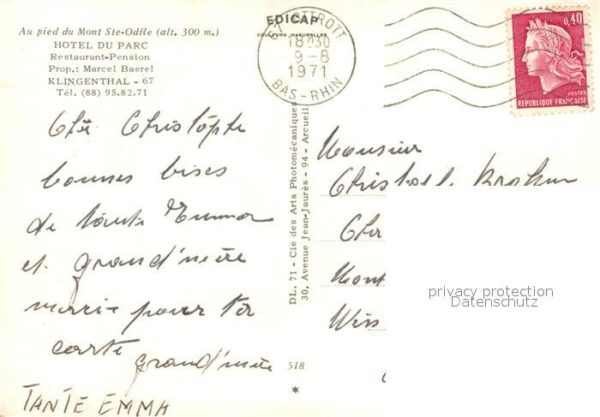 Au pied du Mont Ste-Odile (alt. 300 m.)
HOTEL DU PARC
Restaurant-Pension
Prop.: Marcel Baerel
KLINGENTHAL - 67
Tél. (88) 95.82.71
EDICAP
COULEURS NATURELLES
OTTROTT
18H30
9-8
1971
BAS-RHIN
0,40
POSTES
REPUBLIQUE FRANÇAISE
Christophe
bonnes bises
de tante Emma
et grand'mère
merci pour ta
carte
grand'mère
TANTE EMMA
DL. 71 - Cie des Arts Photomécaniques
30, Avenue Jean-Jaurès - 94 - Arcueil
518
*
Monsieur
privacy protection
Datenschutz